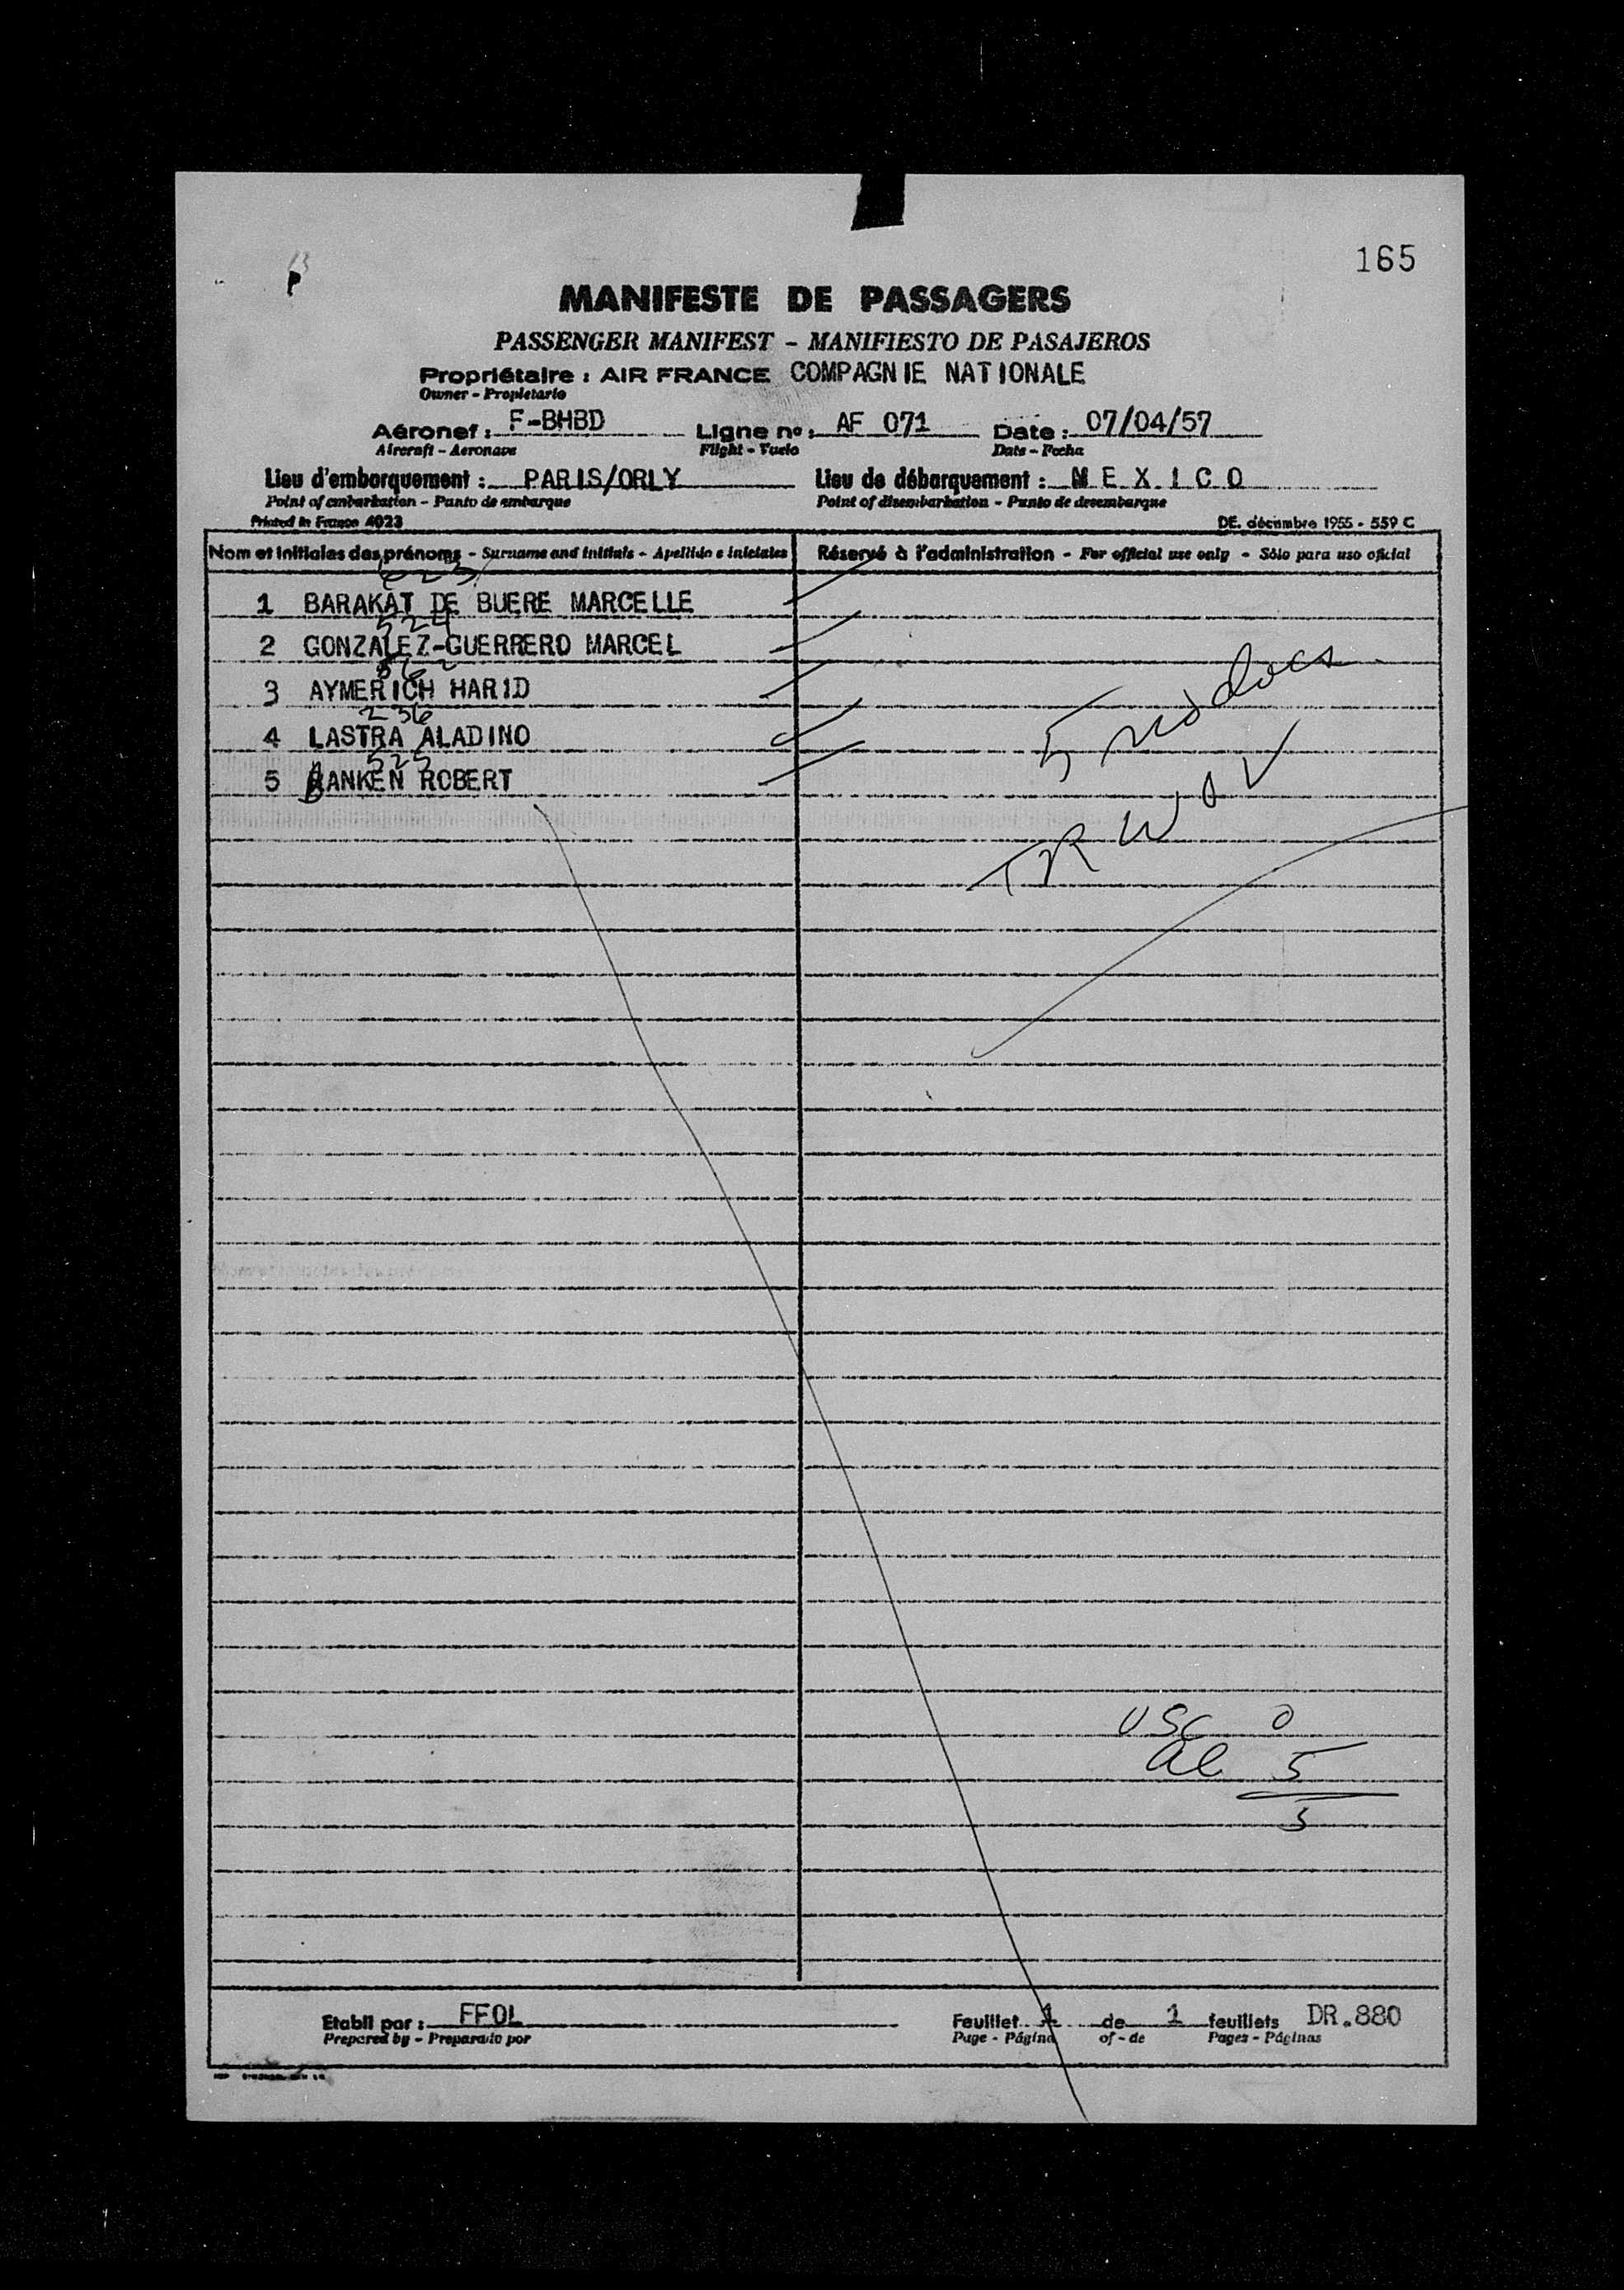 165
MANIFESTE DE PASSAGERS
PASSENGER MANIFEST - MANIFIESTO DE PASAJEROS
Propriétaire : AIR FRANCE COMPAGNIE NATIONALE
Owner - Propietario
Aéronef : F-BHBD Ligne nº : AF 071 Date : 07/04/57
Aircraft - Aeronave Flight - Vuelo Date - Fecha
Lieu d'embarquement : PARIS/ORLY Lieu de débarquement : MEXICO
Point of embarkation - Punto de embarque Point of disembarkation - Punto de desembarque
Printed in France 4023 DE. décembre 1955 - 559 C
Nom et initiales des prénoms - Surname and initials - Apellido e iniciales Réservé à l'administration - For official use only - Sôlo para uso oficial
623
1 BARAKAT DE BUERE MARCELLE
524
2 GONZALEZ-GUERRERO MARCEL
562
3 AYMERICH HARID
236
4 LASTRA ALADINO
525
5 BANKEN ROBERT
5 no docs
TRWOV
USC 0
al 5
5
Etabli par : FFOL Feuillet 1 de 1 feuillets DR.880
Prepared by - Preparado por Page - Página of - de Pages - Páginas